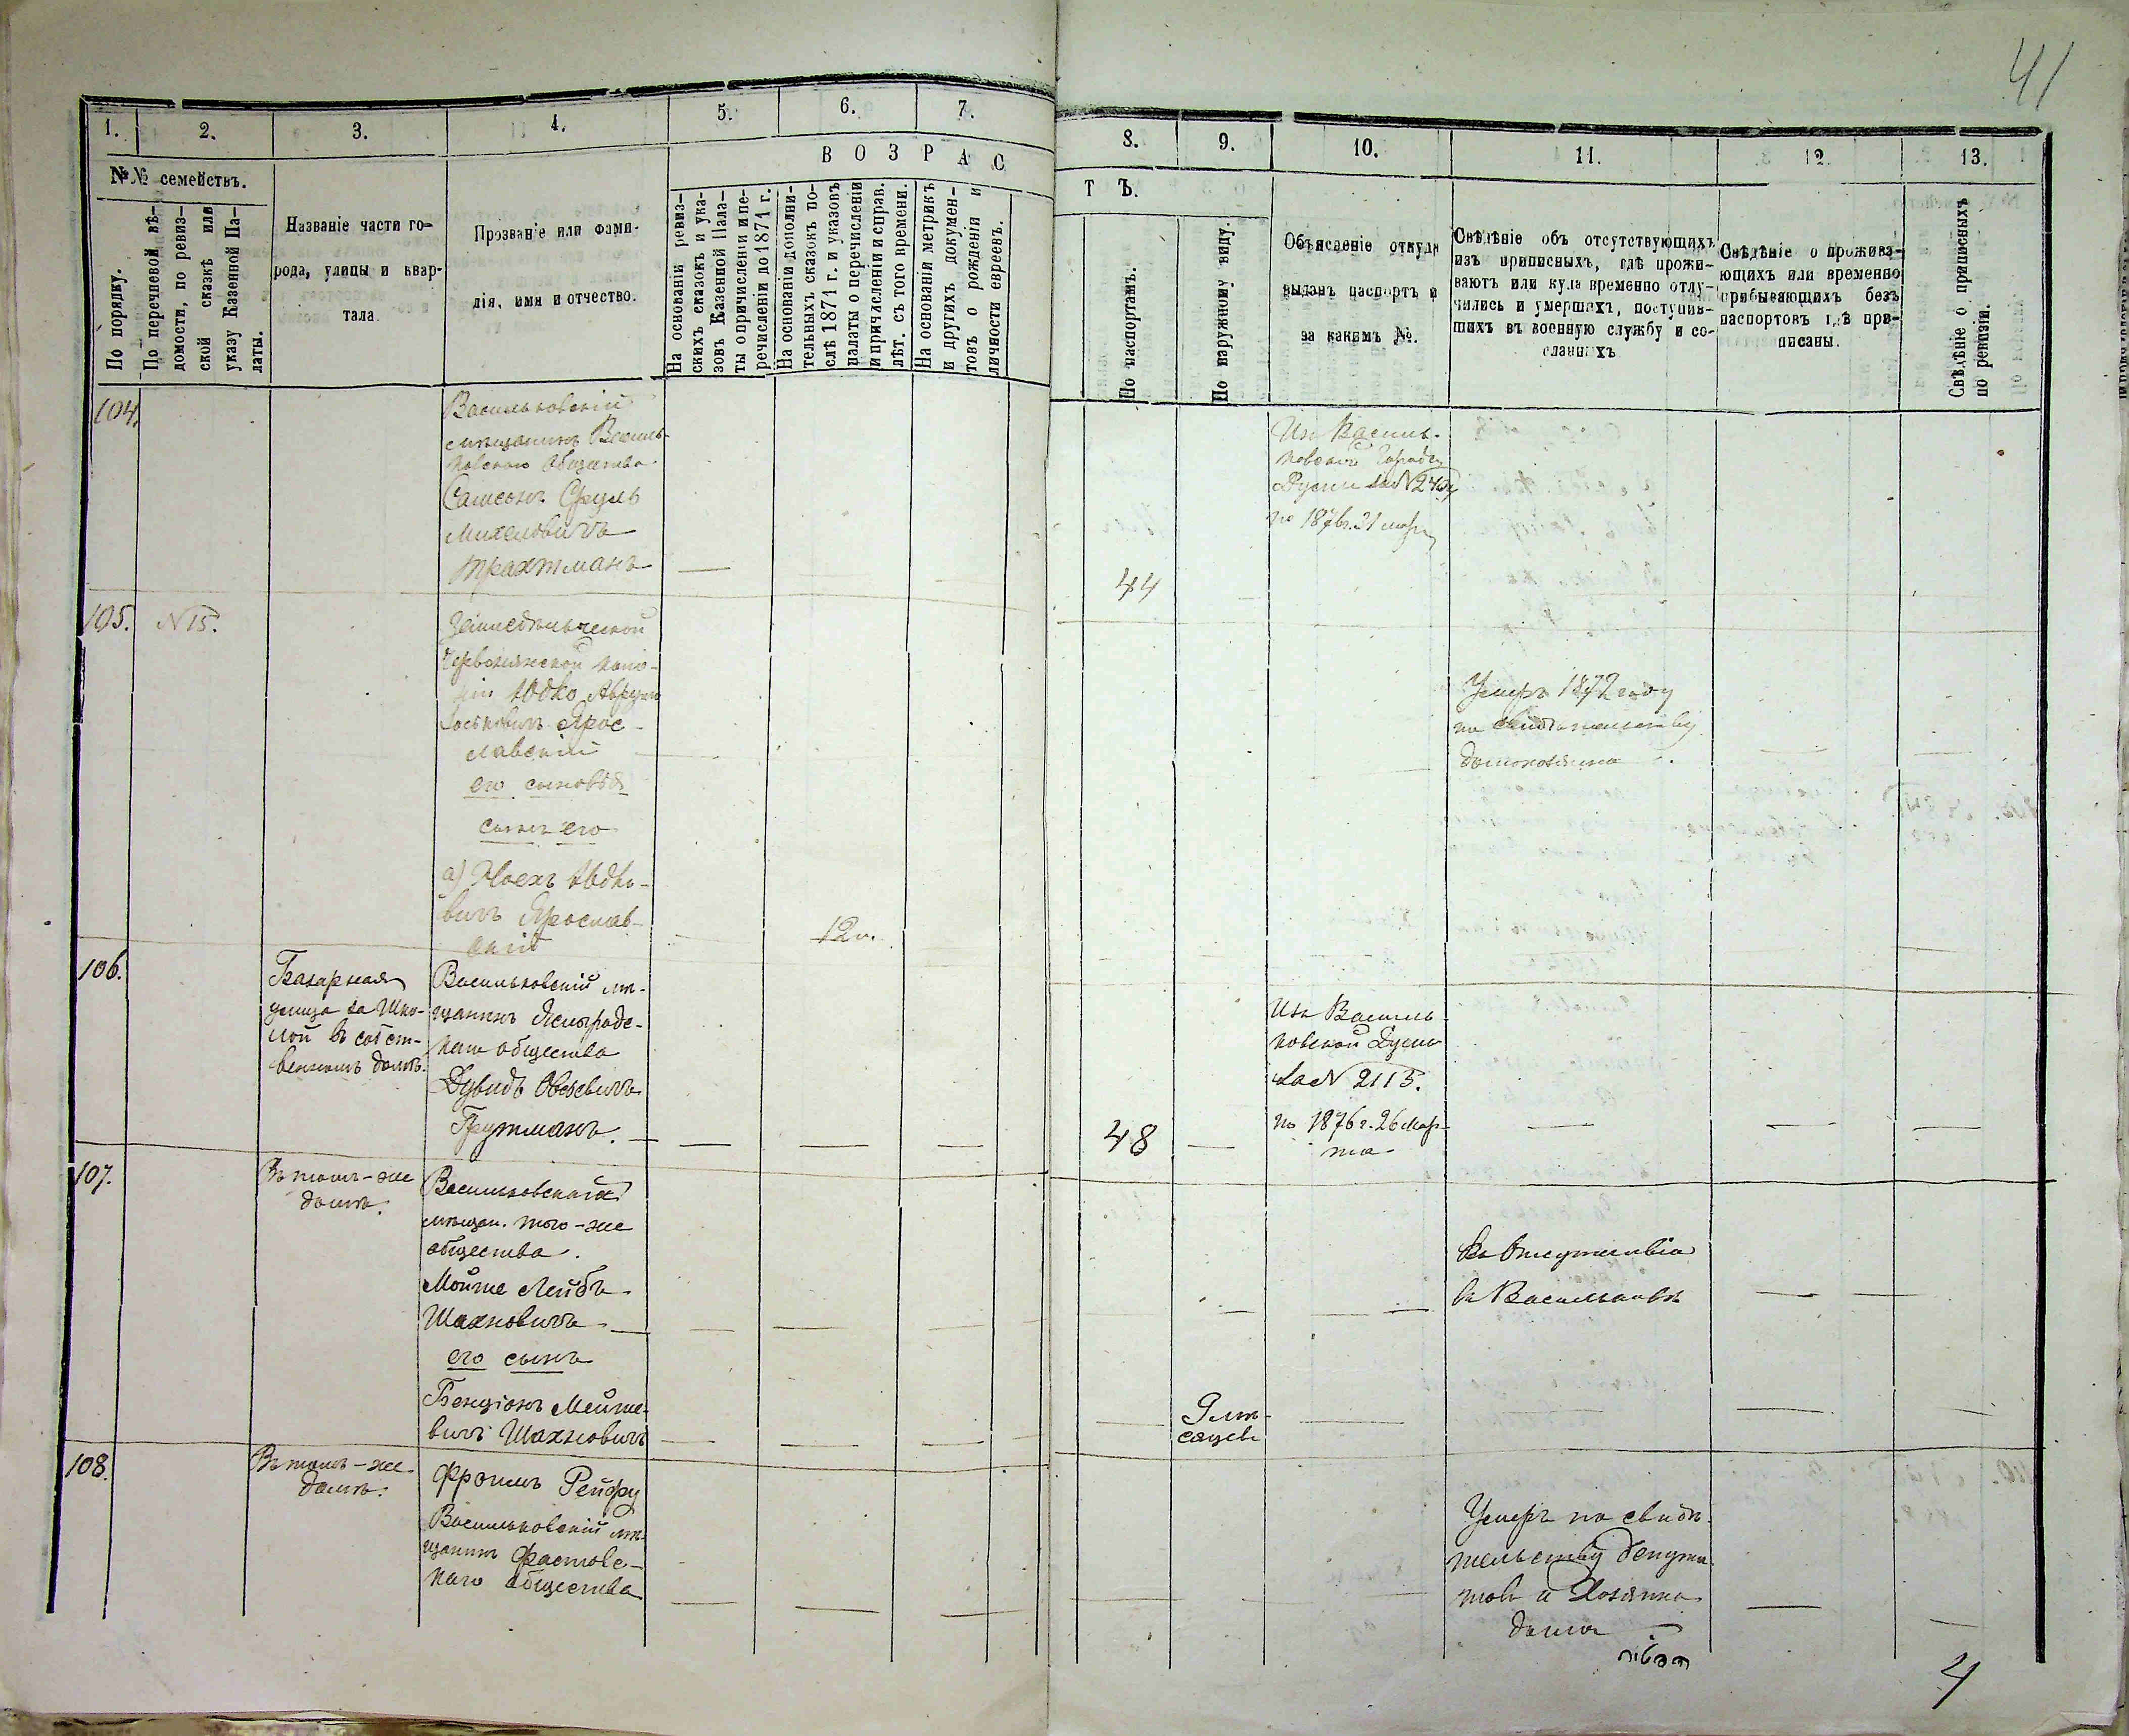 41
1. 2. 3. 4. 5. 6. 7. 8. 9. 10. 11. 12. 13.
№№ семействъ.
В О З Р А С Т Ъ.
По порядку.
По перечневой вѣ-
домости, по ревиз-
ской сказкѣ или
указу Казенной Па-
латы.
Названіе части го-
рода, улицы и квар-
тала
Прозваніе или фами-
лія, имя и отчество.
На основаніи ревиз-
скихъ сказокъ и ука-
зовъ Казенной Пала-
ты о причисленіи и пе-
речисленіи до 1871 г.
На основаніи дополни-
тельныхъ сказокъ по-
слѣ 1871 г. и указовъ
палаты о перечисленіи
и причисленіи и справ.
лѣт. съ того времени.
На основаніи метрикъ
и другихъ докумен-
товъ о рожденіи и
личности евреевъ.
По паспортамъ.
По наружному виду.
Объясненіе откуда
выданъ паспортъ и
за какимъ №.
Свѣдѣніе объ отсутствующихъ
изъ приписныхъ, гдѣ прожи-
ваютъ или куда временно отлу-
чились и умершихъ, поступив-
шихъ въ военную службу и со-
сланныхъ
Свѣдѣніе о прожива-
ющихъ или временно
прибывающихъ безъ
паспортовъ гдѣ при-
писаны.
Свѣдѣніе о приписныхъ
по ревизіи.
104.
Васильковскій
мѣщанинъ Василь-
ковскаго Общества
Самсонъ Сруль
Михелевичъ
Трахтманъ
44
Изъ Василь-
ковской Городск
Думы за №
по 1876г. 21 мар
105. N 15.
Земледѣльческой
Червонянской коло-
ніи Авдко Аврум
Іоськовичъ Ярос-
лавскій
его сыновья
сынъ его
а) Ноехъ Авдко-
вичъ Ярослав-
скій
12 л.
Умеръ 1872 году
по свидѣтельству
домохозяина
106.
Базарная
улица за Шко-
лой въ собст-
венномъ домѣ.
Васильковскій мѣ-
щанинъ
каго общества
Дувидъ Овсѣевичъ
Грутманъ.
48
Изъ Василь-
ковской Думы
За N 2113.
по 1876 г. 26 Мар-
та
107.
Въ томъ-же
домѣ.
Васильковскій
мѣщан. того-же
общества.
Мойше Лейбъ
Шахновичъ
его сынъ
Бенціонъ Мойше-
вичъ Шахновичъ
9 лѣт-
Въ Отсутствіи
въ Васильковѣ
108.
Въ томъ-же
домѣ.
Фроимъ
Васильковскій мѣ-
щанинъ Фастовс-
каго общества
Умеръ по свидѣ-
тельству депута-
товъ и Хозяина
дома
4